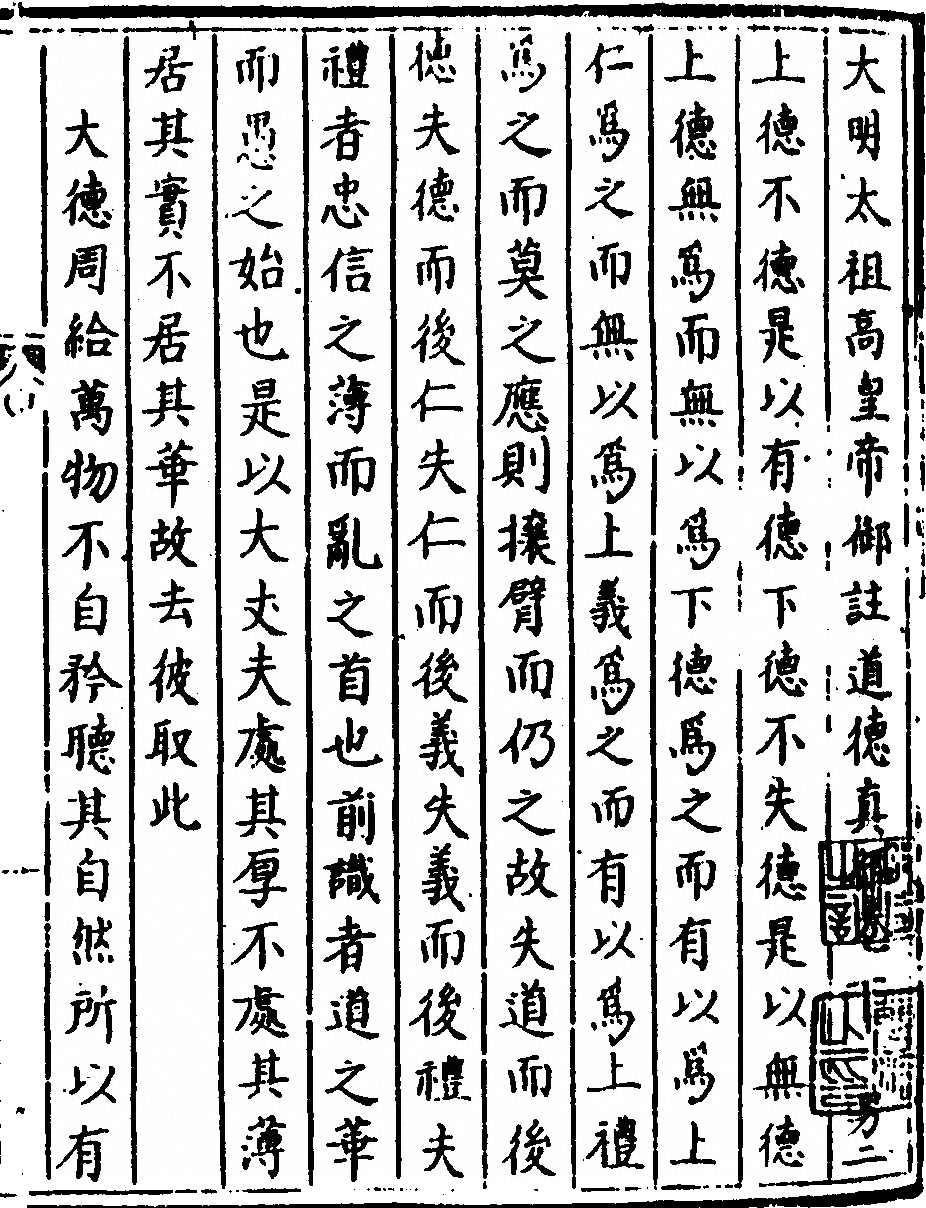 大明太祖高皇帝御註道德真經卷 男二
上德不德是以有德下德不失德是以無德
上德無為而無以為下德為之而有以為上
仁為之而無以為上義為之而有以為上禮
為之而莫之應則攘臂而仍之故失道而後
德夫德而後仁失仁而後義失義而後禮夫
禮者忠信之薄而亂之首也前識者道之華
而愚之始也是以大丈夫處其厚不處其薄
居其實不居其華故去彼取此
大德周給萬物不自矜聽其自然所以有